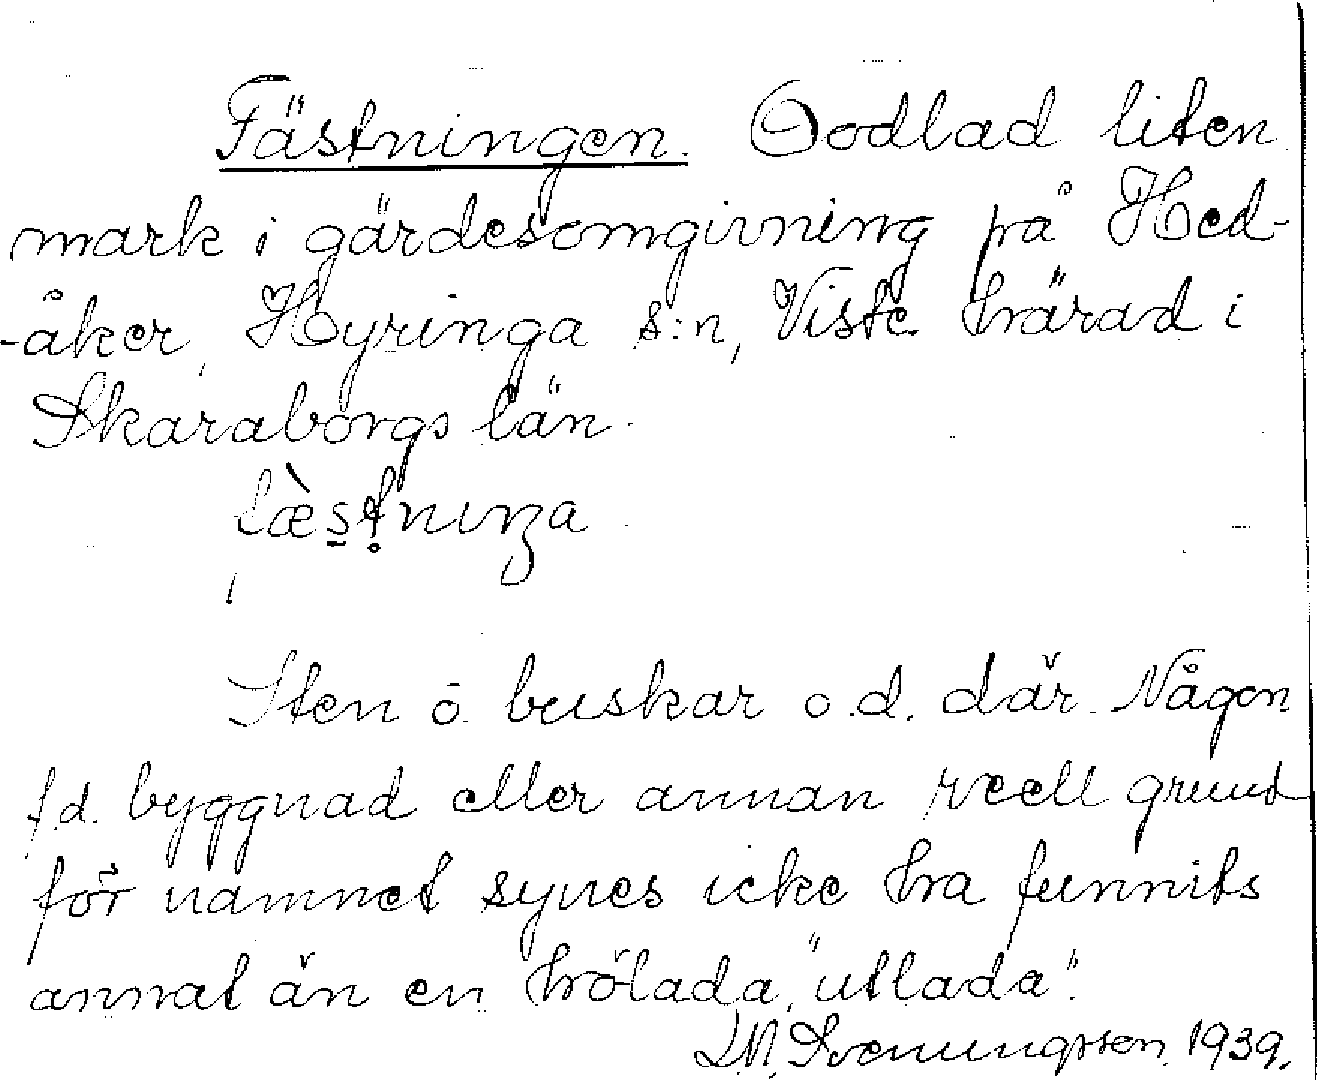 Fästningen. Oodlad liten
mark i gärdesomgivning på Hed-
-åker, Hyringa s:n, Viste härad i
Skaraborgs län.
fæ̀stnıŋa
Sten o. buskar o.d. där. Någon
f.d. byggnad eller annan reell grund
för namnet synes icke ha funnits
annat än en hölada, "utlada".
Svenungsson 1939.